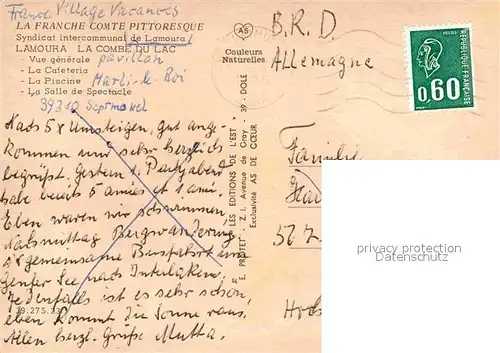 France Village Vacances
LA FRANCHE COMTE PITTORESQUE
Syndicat intercommunal de Lamoura
LAMOURA LA COMBE DU LAC
Vue générale
- La Cafeteria
- La Piscine
- La Salle de Spectacle
pavillon
Marli-le Roi
39310 Septmoncel
AS
Couleurs
Naturelles
B.R.D.
Allemagne
POSTES
REPUBLIQUE FRANÇAISE
0,60
Nach 5 x Umsteigen, gut ange-
kommen und sehr herzlich
begrüßt. Gestern 1. Partyabend
habe bereits 5 amies et 1 ami.
Eben waren wir schwimmen,
Nachmittag Bergwanderung
gemeinsame Busfahrt um
Genfer See nach Interlaken.
Jedenfalls ist es sehr schön,
eben kommt die Sonne raus.
Allen herzl. Grüße Mutta.
39.275.23
"LES EDITIONS DE L'EST"
"E. PROTET" - Z.I. Avenue de Gray - 39 - DOLE
Exclusivité AS DE CŒUR
Familie
567
privacy protection
www.ansichtskartenversand.com